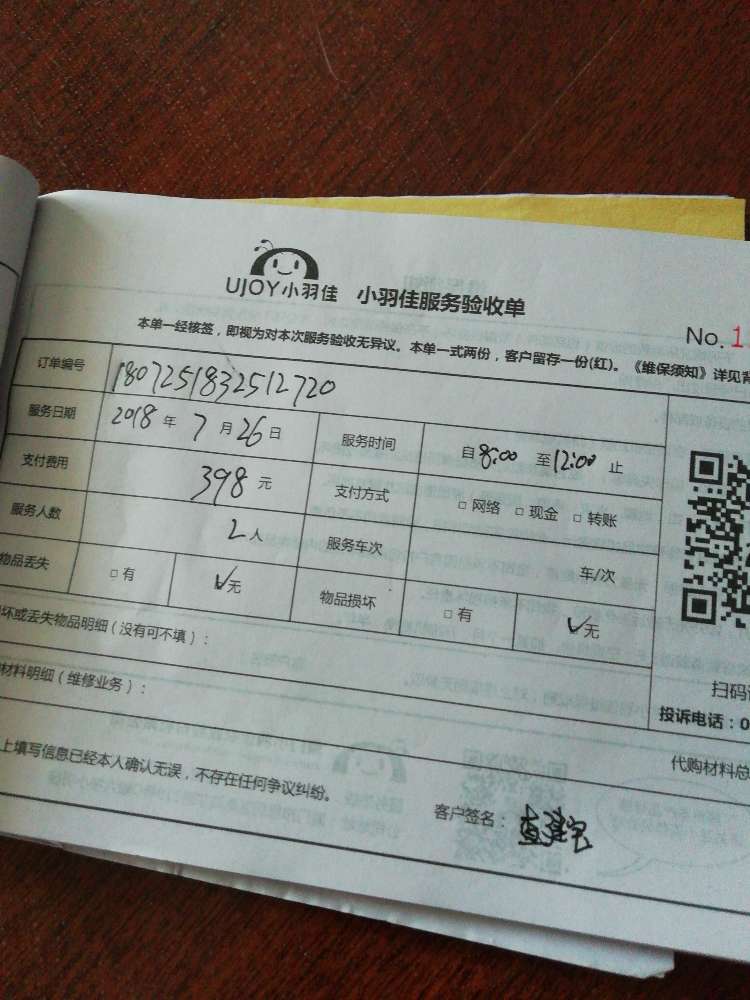 UJOY小羽佳 小羽佳服务验收单
No.1
本单一经核签，即视为对本次服务验收无异议。本单一式两份，客户留存一份(红)。《维保须知》详见背
订单编号 1807251832512720
服务日期 2018 年 7 月 26 日 服务时间 自 8:00 至 12:00 止
支付费用 398 元 支付方式 □ 网络 □ 现金 □ 转账
服务人数 2 人 服务车次 车/次
物品丢失 □ 有 ✓无 物品损坏 □ 有 ✓无
坏或丢失物品明细（没有可不填）：
材料明细（维修业务）：
扫码
投诉电话：0
代购材料总
上填写信息已经本人确认无误，不存在任何争议纠纷。
客户签名：